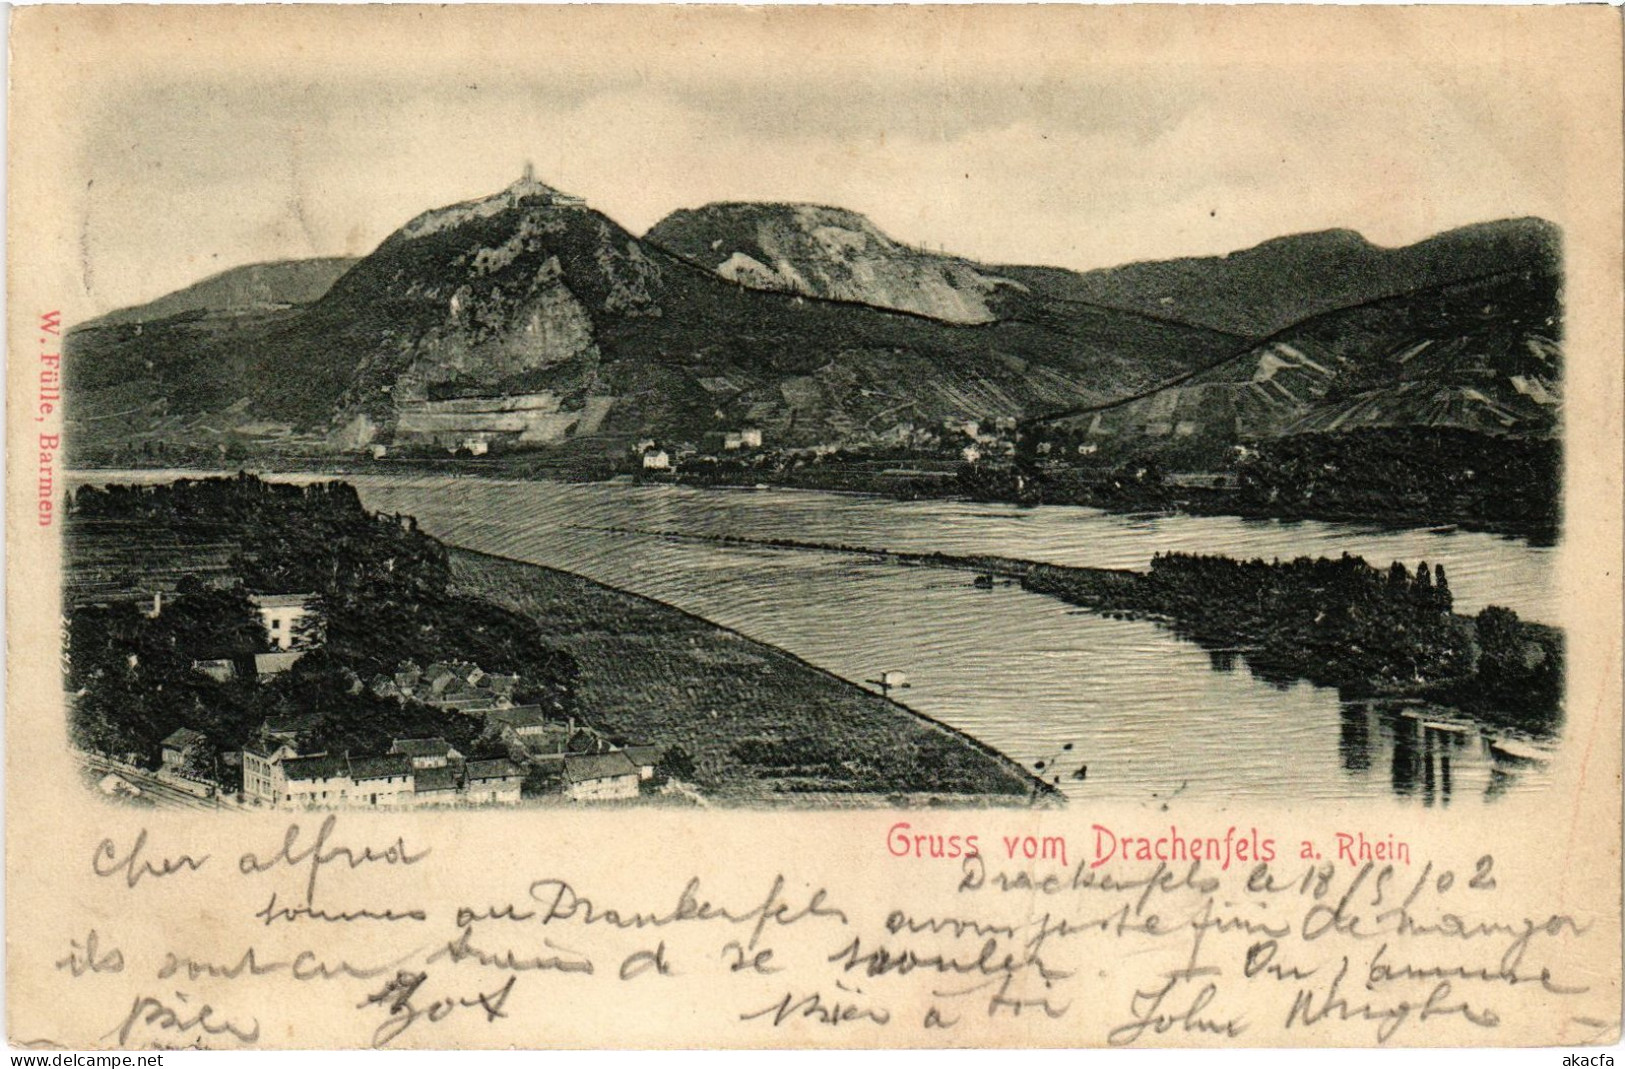 W. Fülle, Barmen
Gruss vom Drachenfels a. Rhein
Drachenfels le 18/5/02
Cher Alfred
sommes au Drankenfels avons juste fini de mangor
ils sont en train d se saouler. - On s'amuse
bien à toi John Wright
akacfa
www.delcampe.net